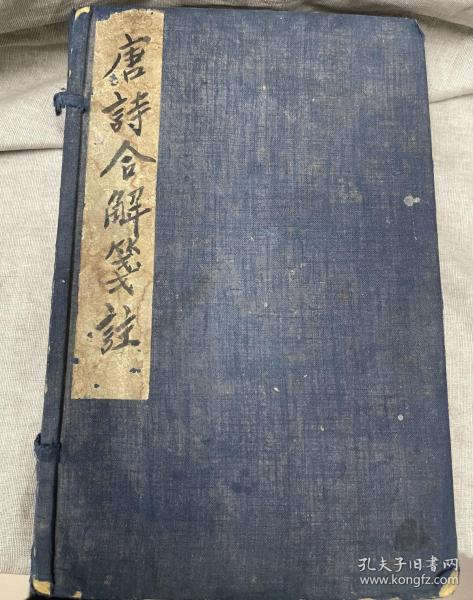 唐詩合解箋註
孔夫子旧书网
www.kongfz.com